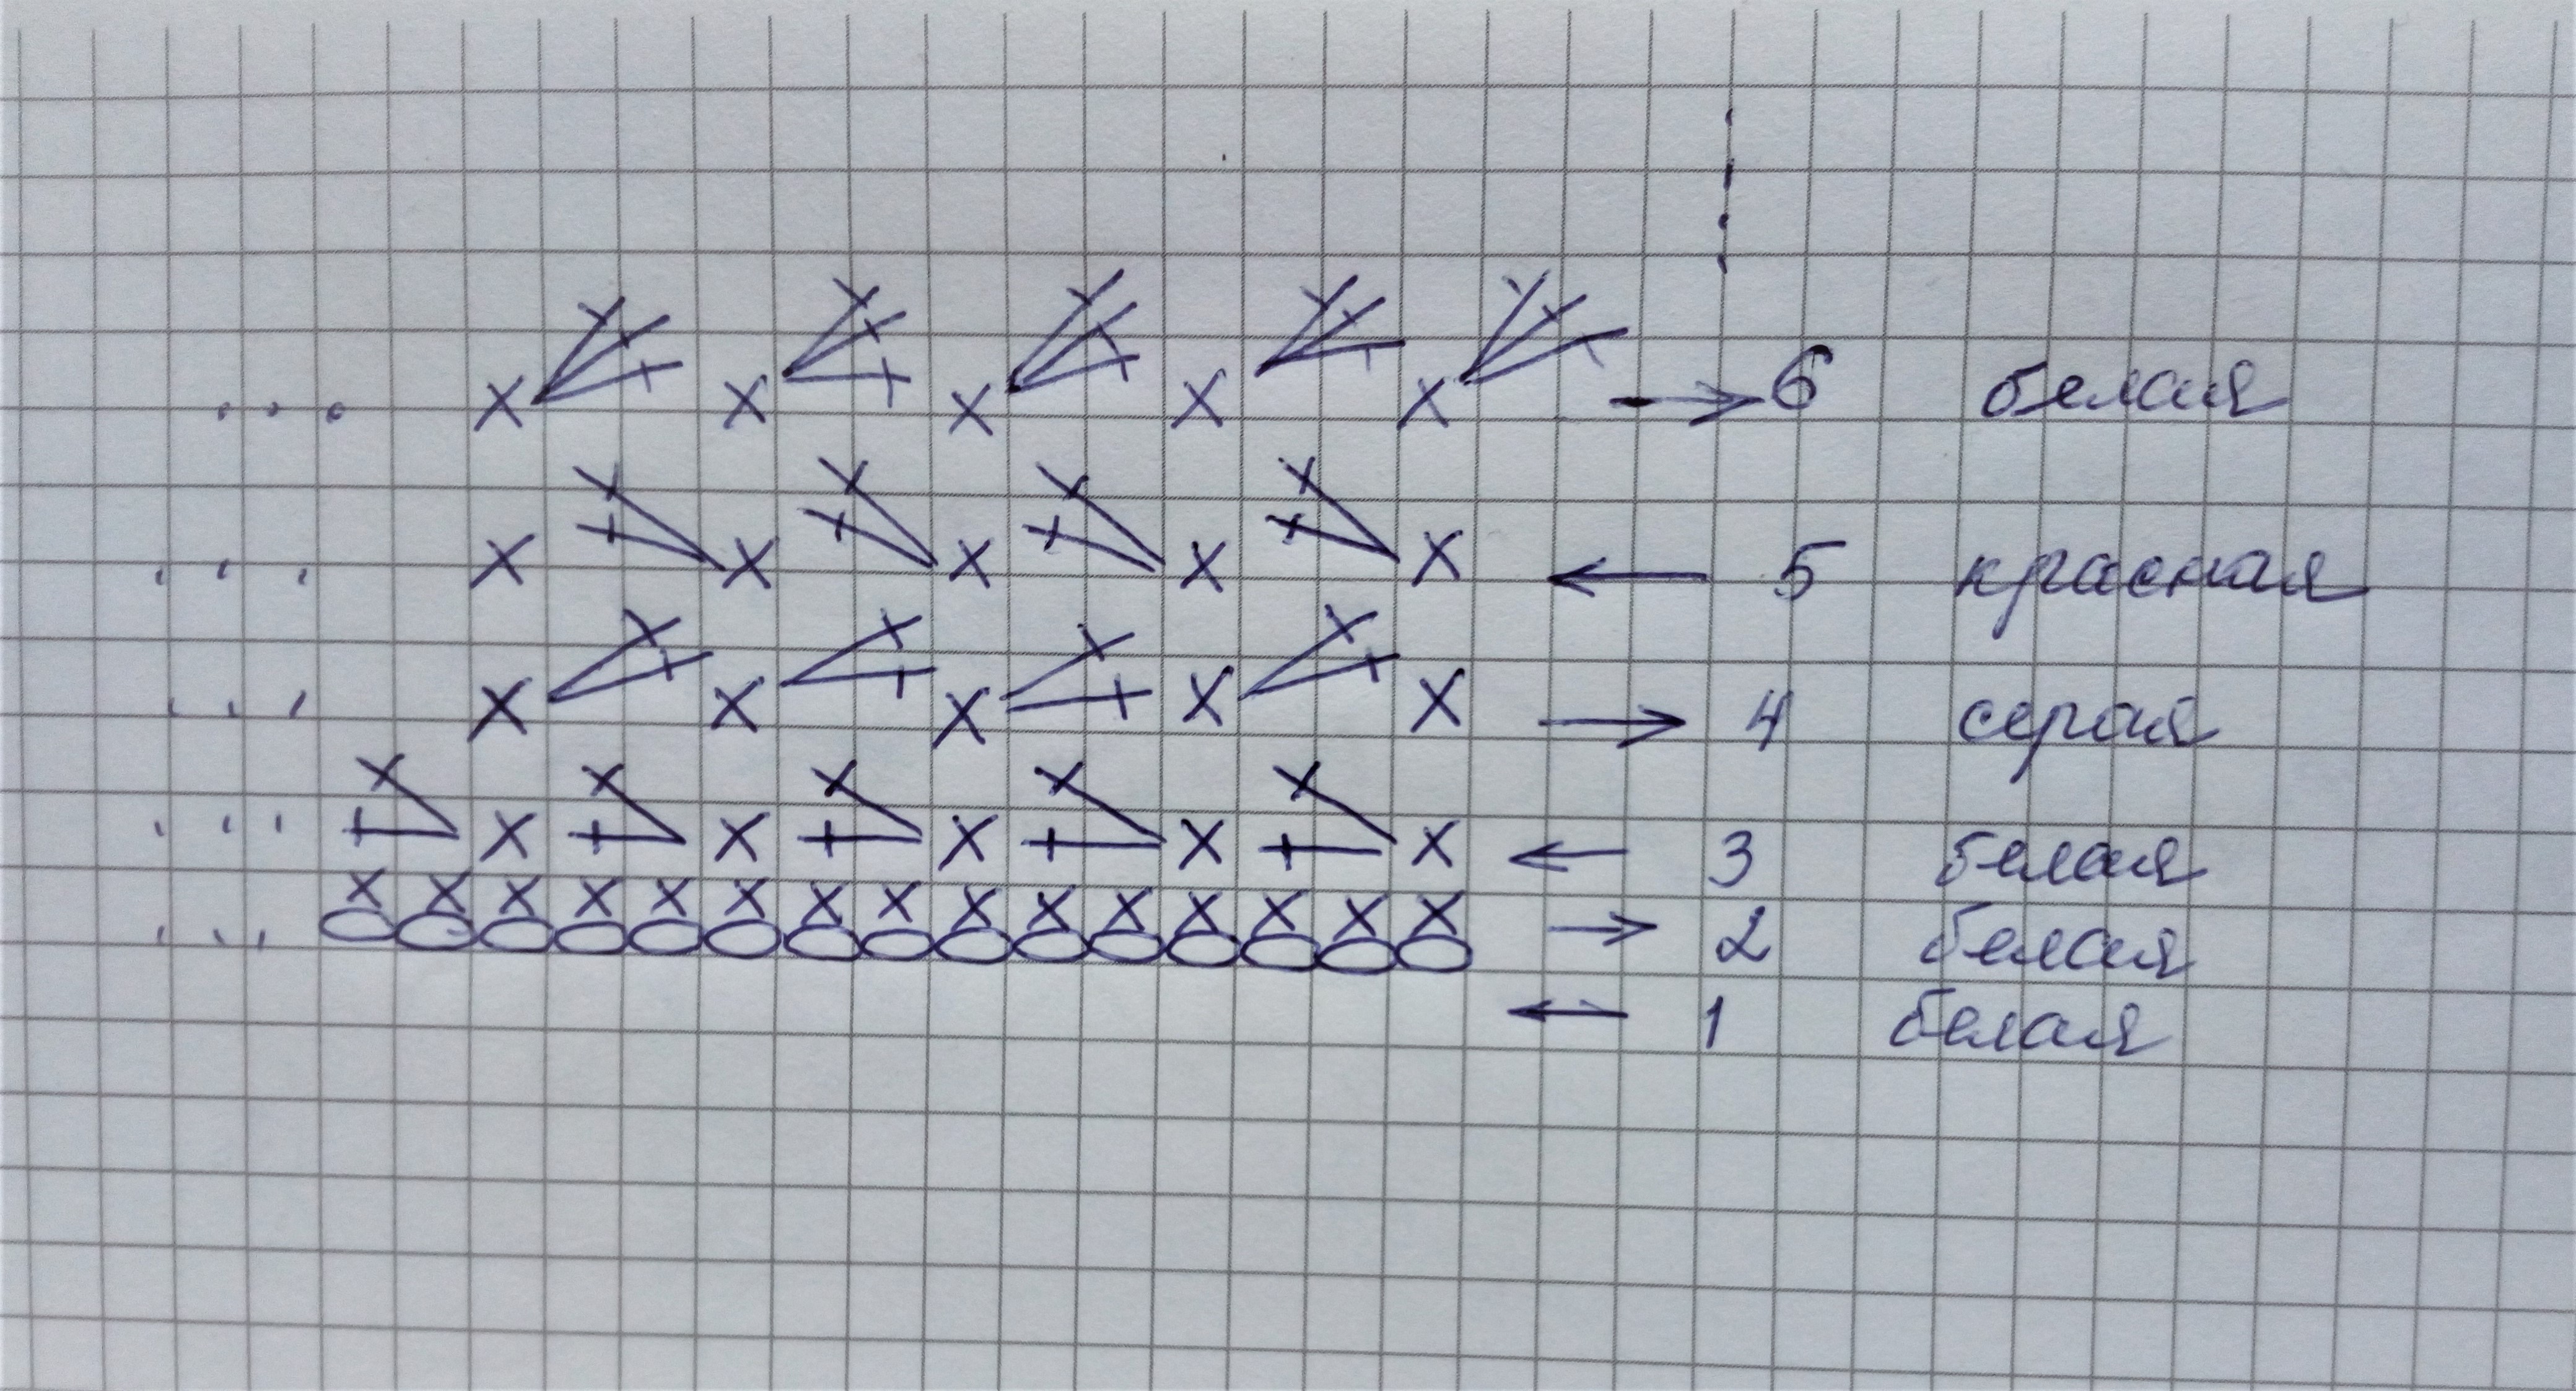 6 белая
5 красная
4 серая
3 белая
2 белая
1 белая